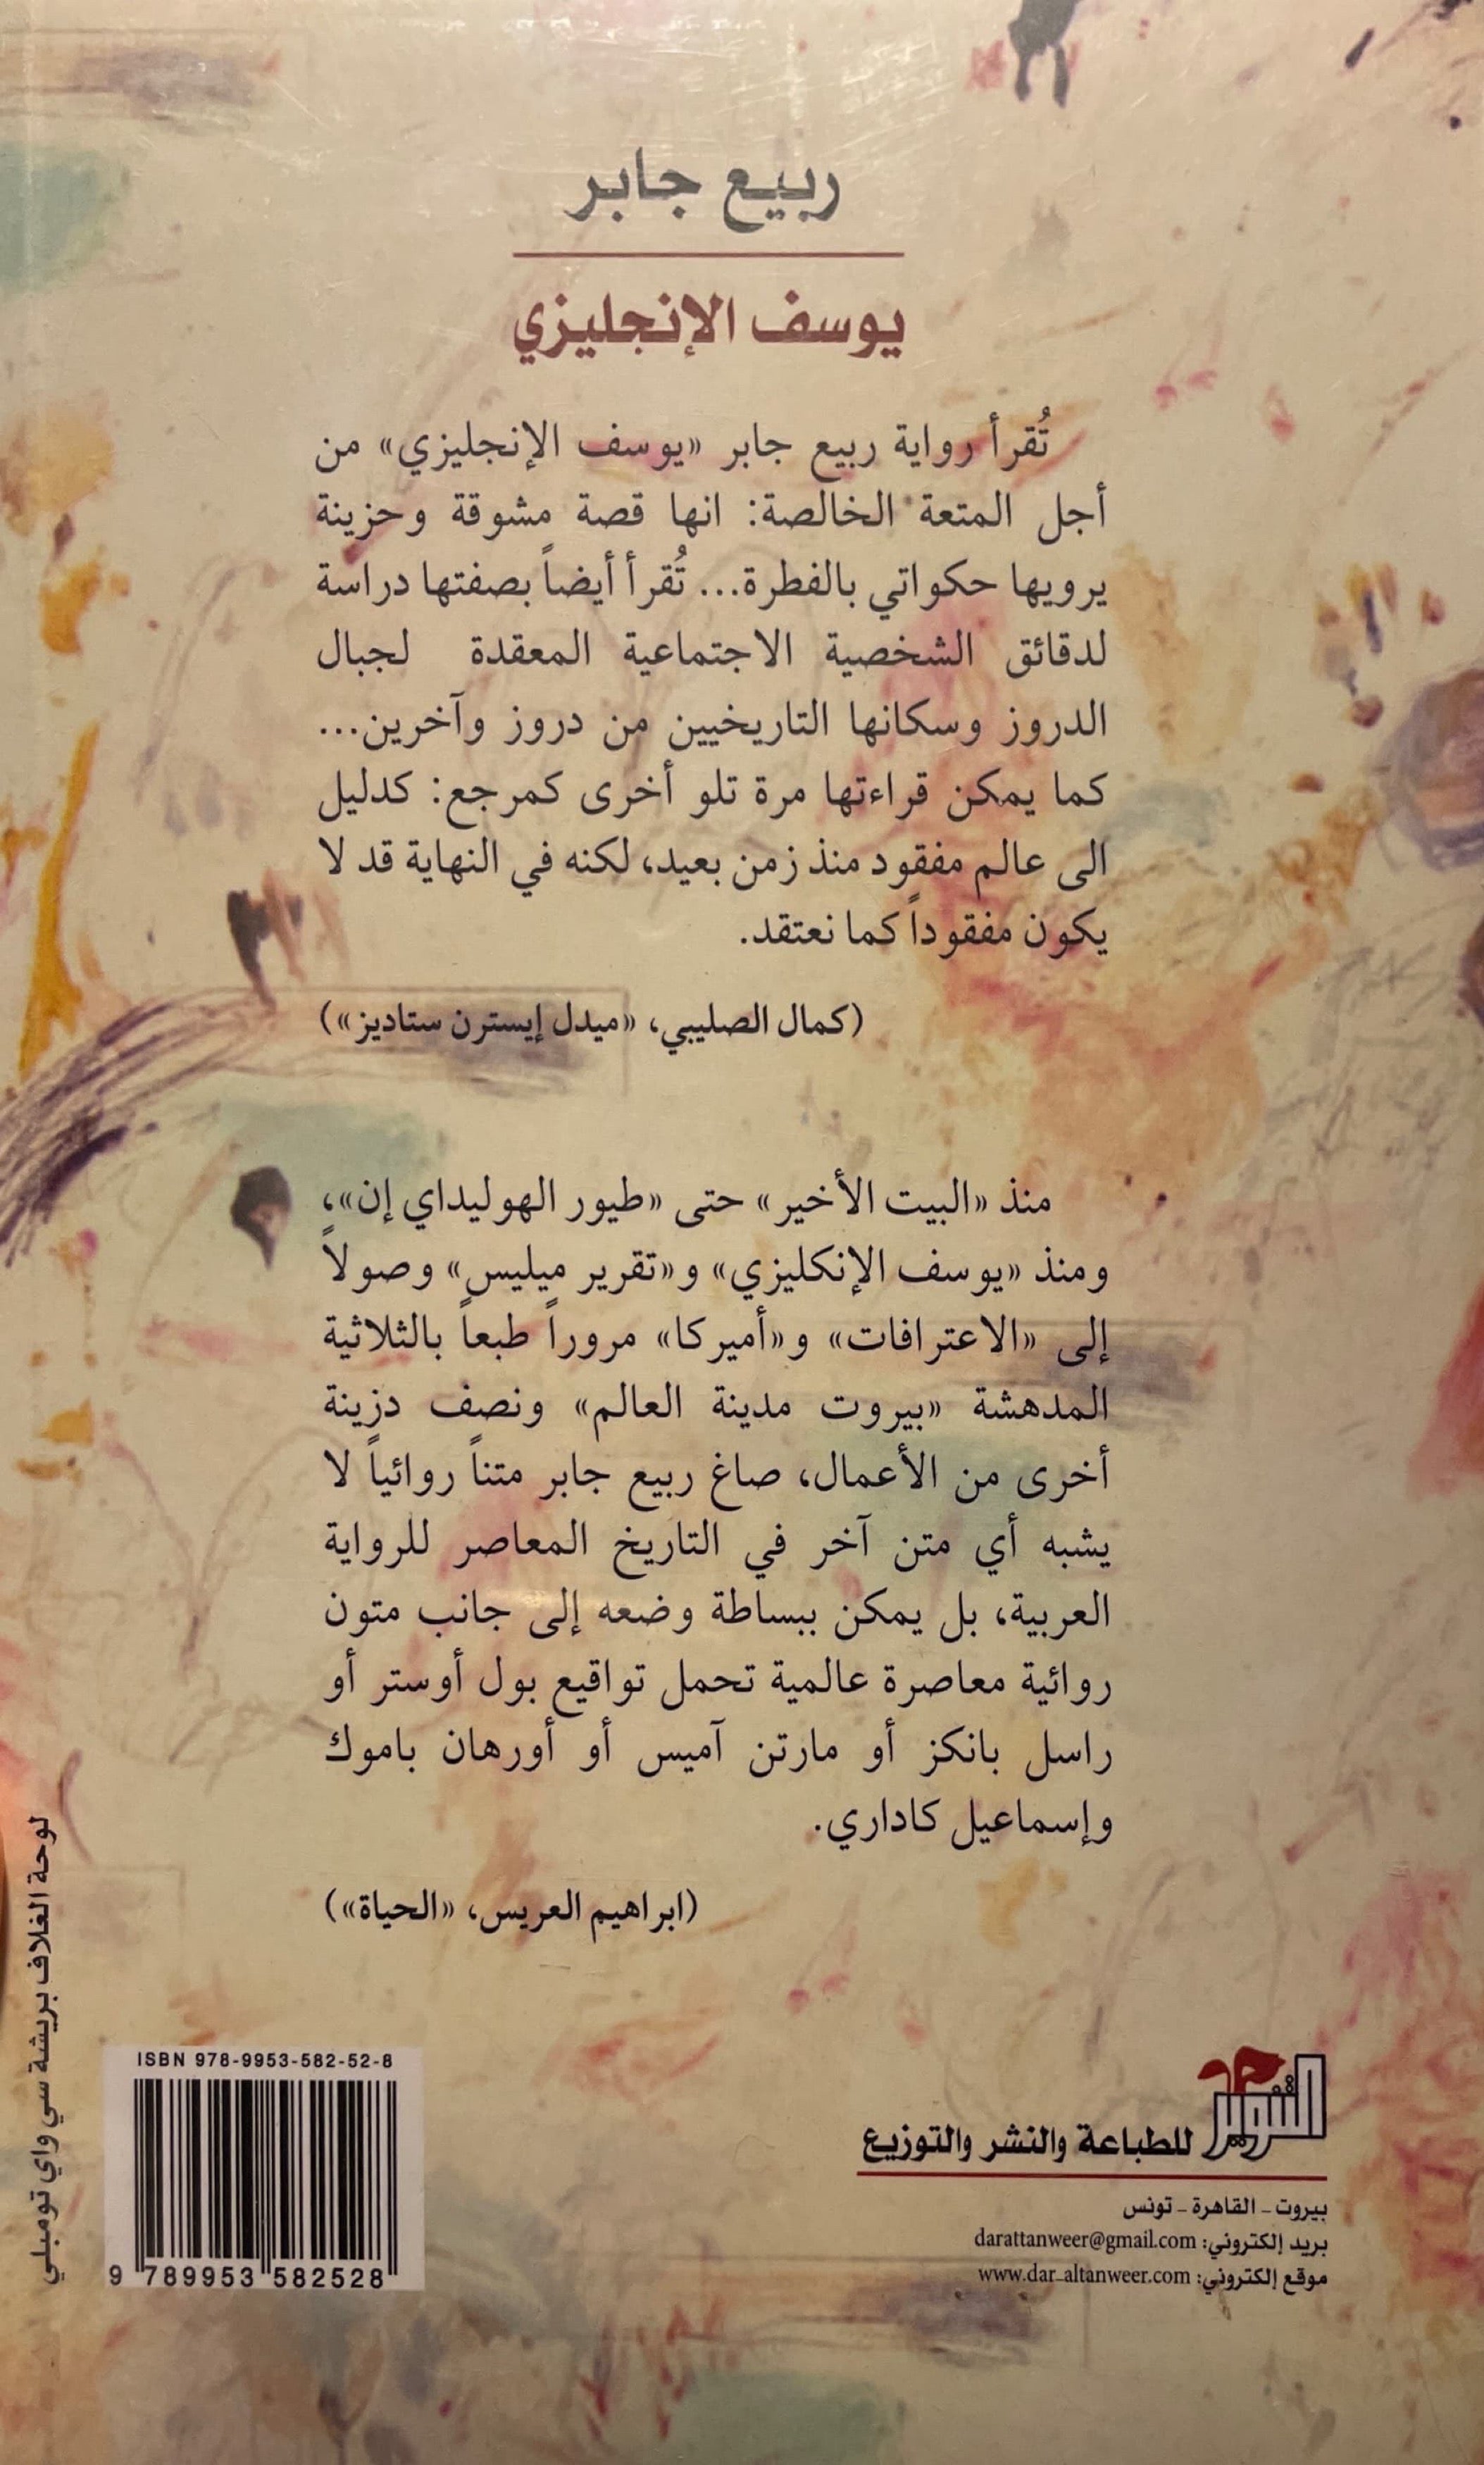 ربيع جابر
يوسف الإنجليزي
تُقرأ رواية ربيع جابر «يوسف الإنجليزي» من
أجل المتعة الخالصة: انها قصة مشوقة وحزينة
يرويها حكواتي بالفطرة... تُقرأ أيضاً بصفتها دراسة
لدقائق الشخصية الاجتماعية المعقدة لجبال
الدروز وسكانها التاريخيين من دروز وآخرين...
كما يمكن قراءتها مرة تلو أخرى كمرجع: كدليل
الى عالم مفقود منذ زمن بعيد، لكنه في النهاية قد لا
يكون مفقوداً كما نعتقد.
(كمال الصليبي، «ميدل إيسترن ستاديز»)
منذ «البيت الأخير» حتى «طيور الهوليداي إن»،
ومنذ «يوسف الإنكليزي» و«تقرير ميليس» وصولاً
إلى «الاعترافات» و«أميركا» مروراً طبعاً بالثلاثية
المدهشة «بيروت مدينة العالم» ونصف دزينة
أخرى من الأعمال، صاغ ربيع جابر متناً روائياً لا
يشبه أي متن آخر في التاريخ المعاصر للرواية
العربية، بل يمكن ببساطة وضعه إلى جانب متون
روائية معاصرة عالمية تحمل تواقيع بول أوستر أو
راسل بانكز أو مارتن آميس أو أورهان باموك
وإسماعيل كاداري.
(ابراهيم العريس، «الحياة»)
لوحة الغلاف بريشة سي واي تومبلي
ISBN 978-9953-582-52-8
9 789953 582528
التنوير للطباعة والنشر والتوزيع
بيروت - القاهرة - تونس
بريد إلكتروني: darattanweer@gmail.com
موقع إلكتروني: www.dar-altanweer.com